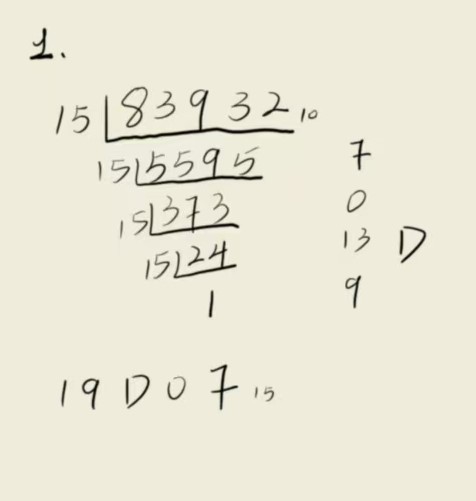 1.
15 83932 10
15 5595 7
15 373 0
15 24 13 D
1 9
19D07 15